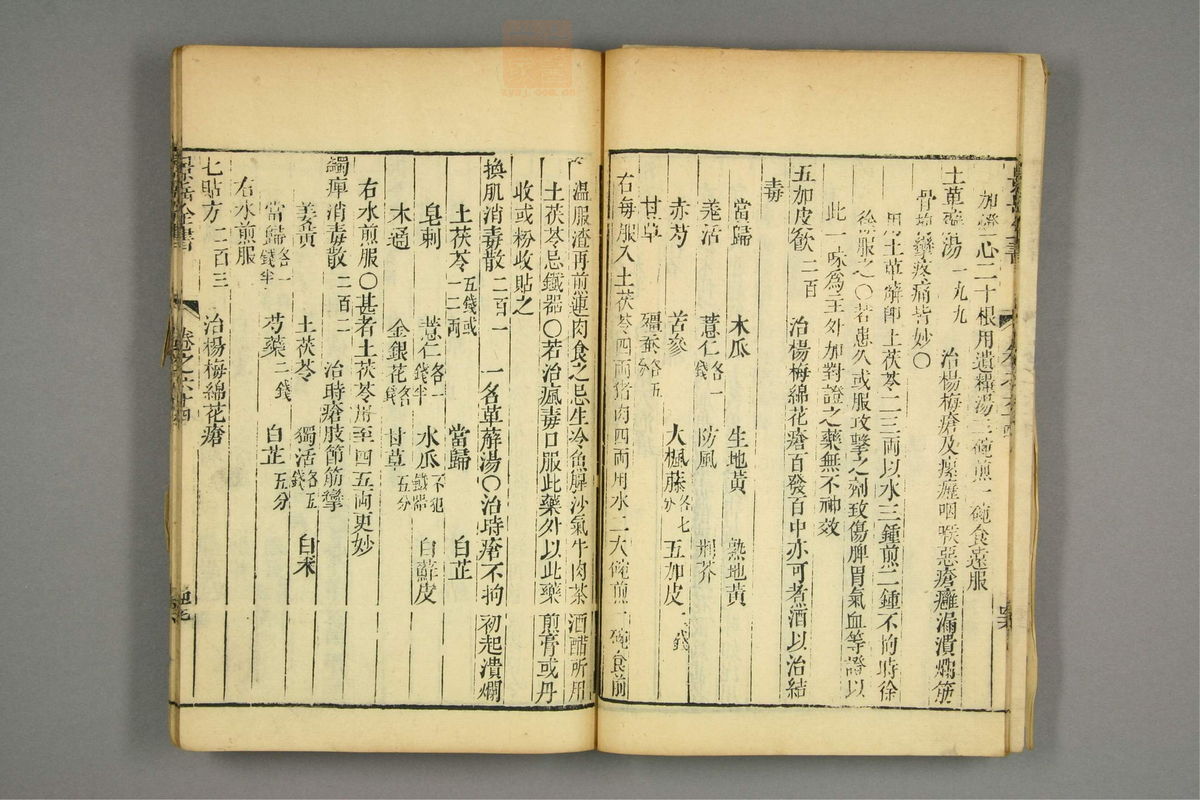 加燈心二十根用遺糧湯三碗煎一碗食遠服
土萆薢湯 一九九 治楊梅瘡及瘰癧咽喉惡瘡癰漏潰爛筋
骨拘攣疼痛皆妙〇
用土萆薢即土茯苓二三兩以水三鍾煎二鍾不拘時徐
徐服之〇若患久或服攻擊之劑致傷脾胃氣血等證以
此一味為主外加對證之藥無不神效
五加皮飲 二百 治楊梅綿花瘡百發百中亦可煮酒以治結
毒
當歸 木瓜 生地黃 熟地黃
羌活 薏仁各一錢 防風 荆芥
赤芍 苦參 大楓藤各七分 五加皮一錢
甘草 殭蠶各五分
右每服入土茯苓四兩猪肉四兩用水二大碗煎一碗食前
溫服渣再煎連肉食之忌生冷魚腥沙氣牛肉茶酒醋所用
土茯苓忌鐵器〇若治瘋毒口服此藥外以此藥煎膏或丹
收或粉收貼之
換肌消毒散 二百一 一名萆薢湯〇治時瘡不拘初起潰爛
土茯苓五錢或一二兩 當歸 白芷
皂刺 薏仁各一錢半 木瓜不犯鐵器 白蘚皮
木通 金銀花各錢 甘草五分
右水煎服〇甚者土茯苓用至四五兩更妙
蠲痺消毒散 二百二 治時瘡肢節筋攣
姜黃 土茯苓 獨活各五錢 白朮
當歸各一錢半 芍藥二錢 白芷五分
右水煎服
七貼方 二百三 治楊梅綿花瘡
景岳全書 卷之六十四